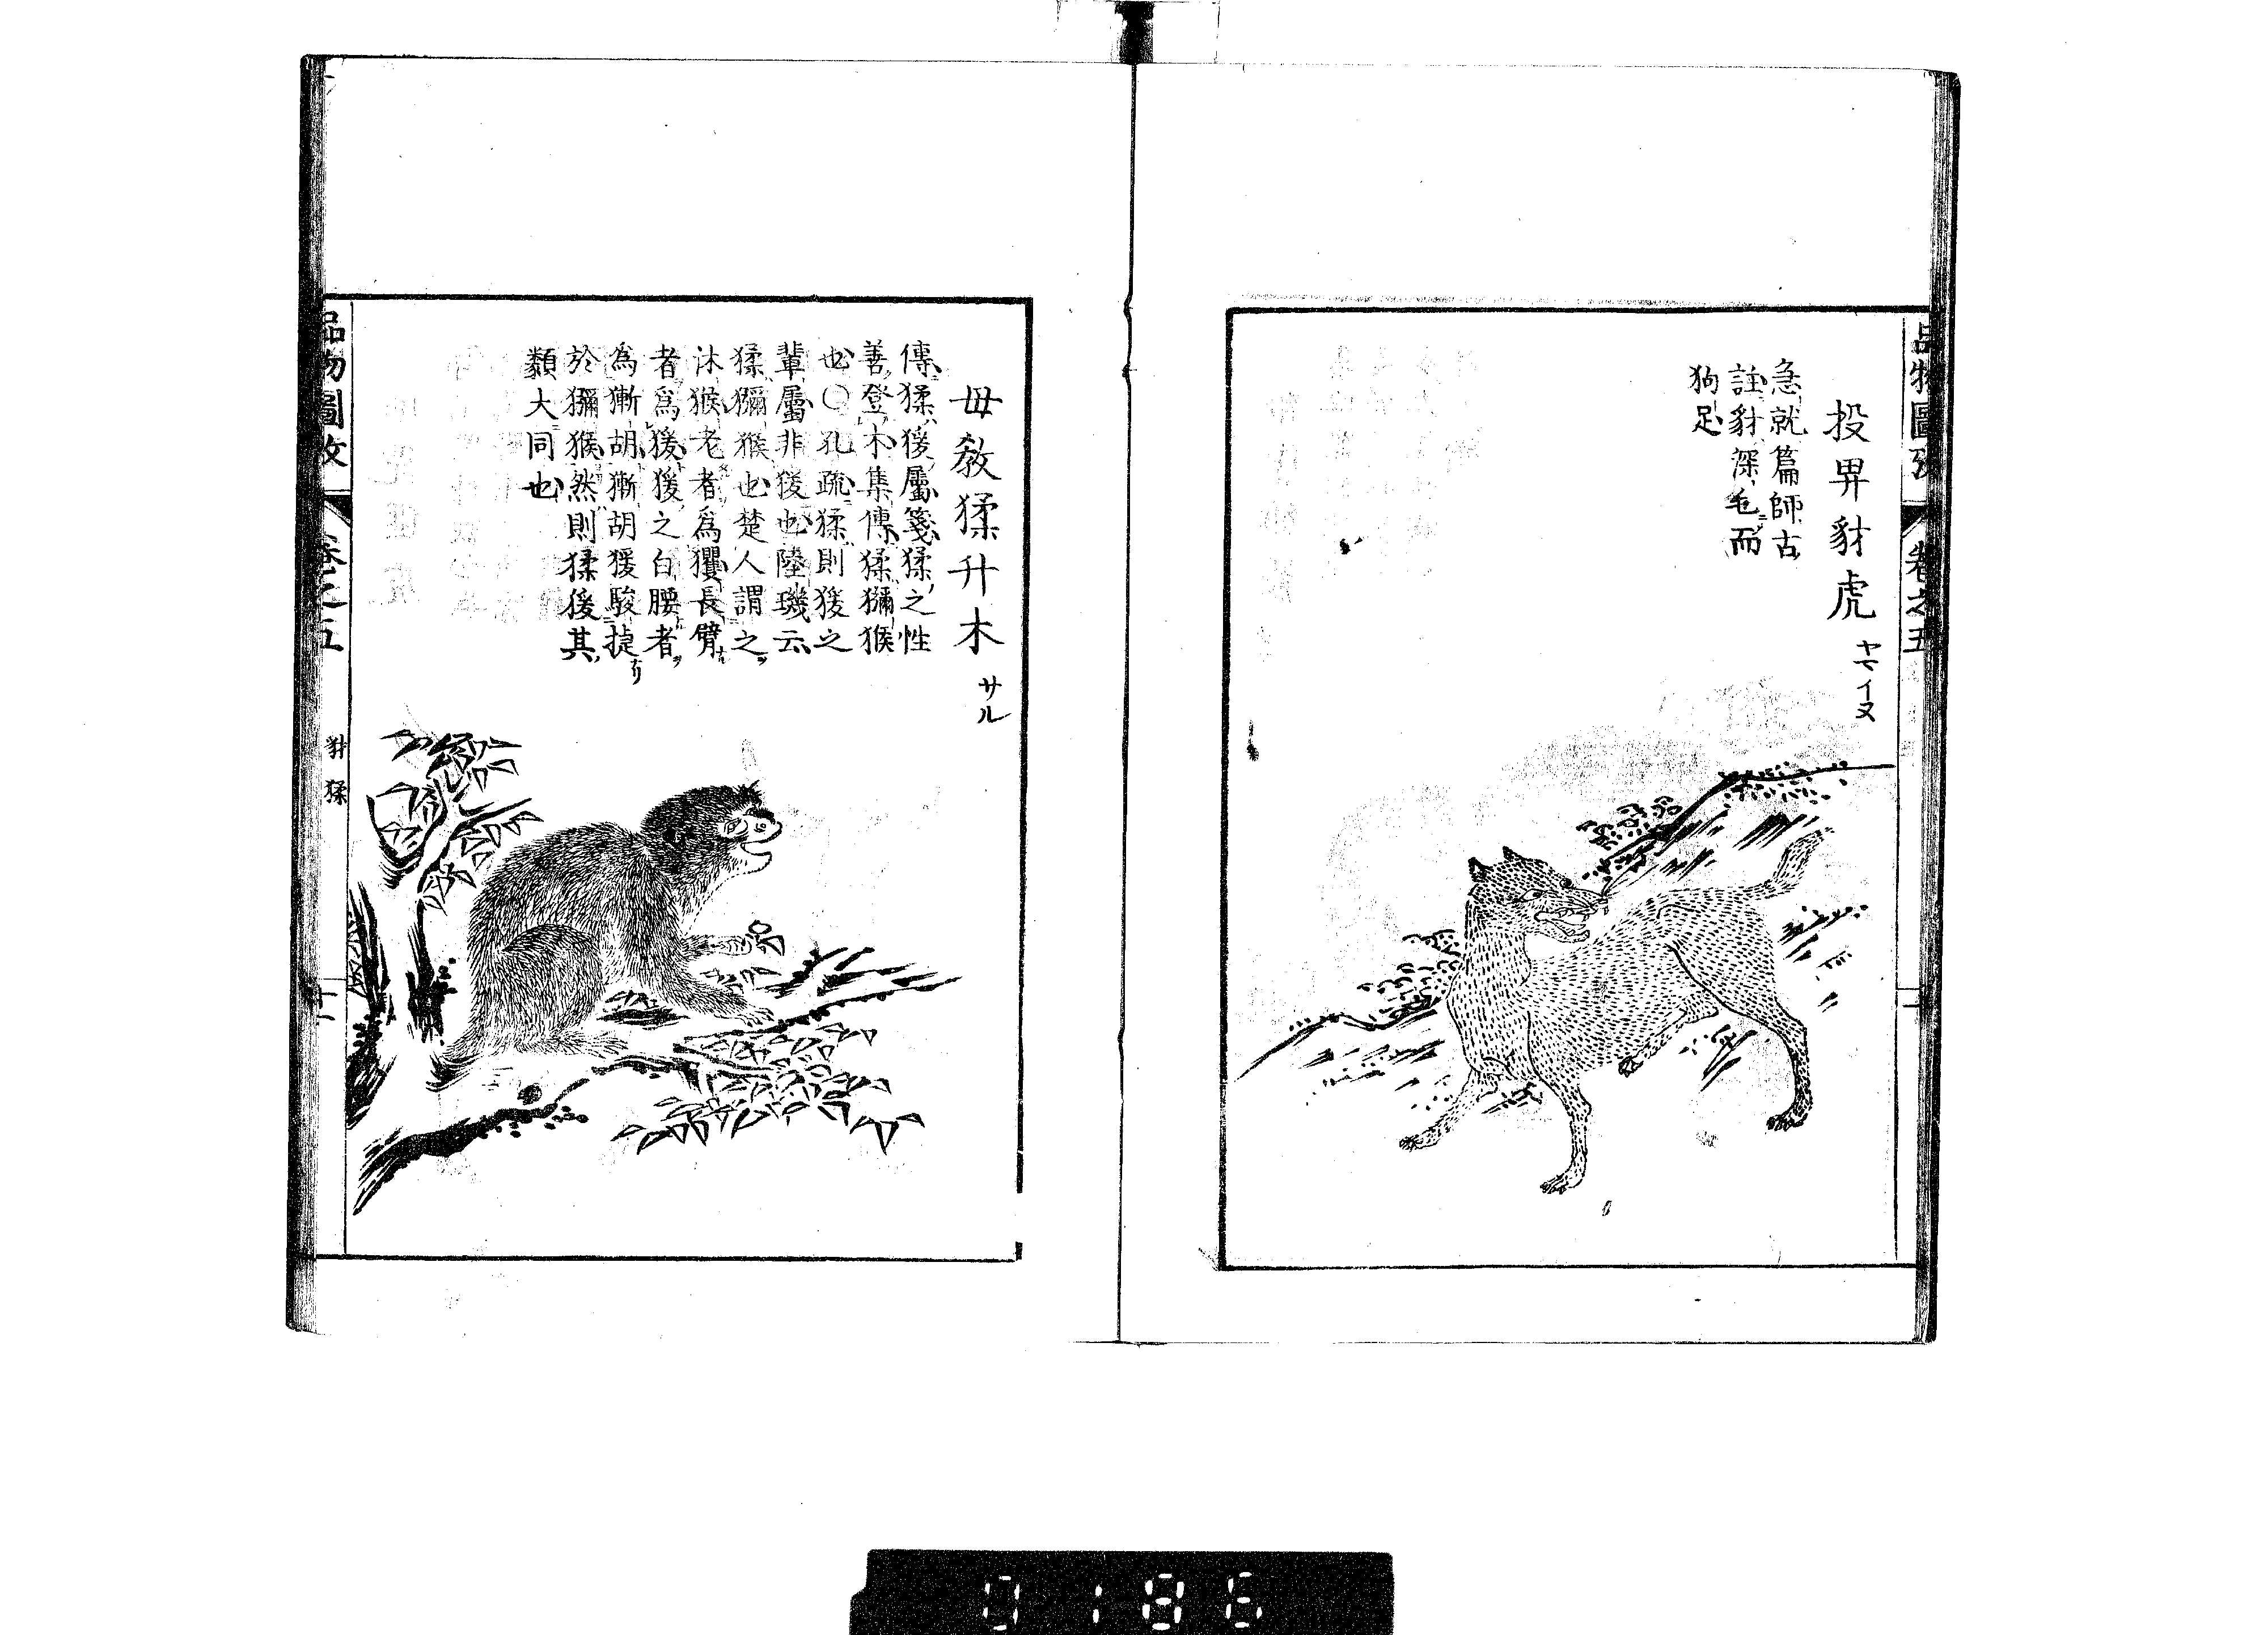 品物圖攷
卷之五
投畀豺虎
ヤマイヌ
急就篇師古
註豺深毛而
狗足
毋敎猱升木
サル
傳猱猨屬箋猱之性
善登木集傳猱獼猴
也〇孔疏猱則猨之
輩屬非猨也陸璣云
猱獼猴也楚人謂之
沐猴老者爲玃長臂
者爲猨猨之白腰者
爲獑胡獑胡猨駿捷
於獼猴然則猱猨其
類大同也
品物圖攷
卷之五
豺猱
0186